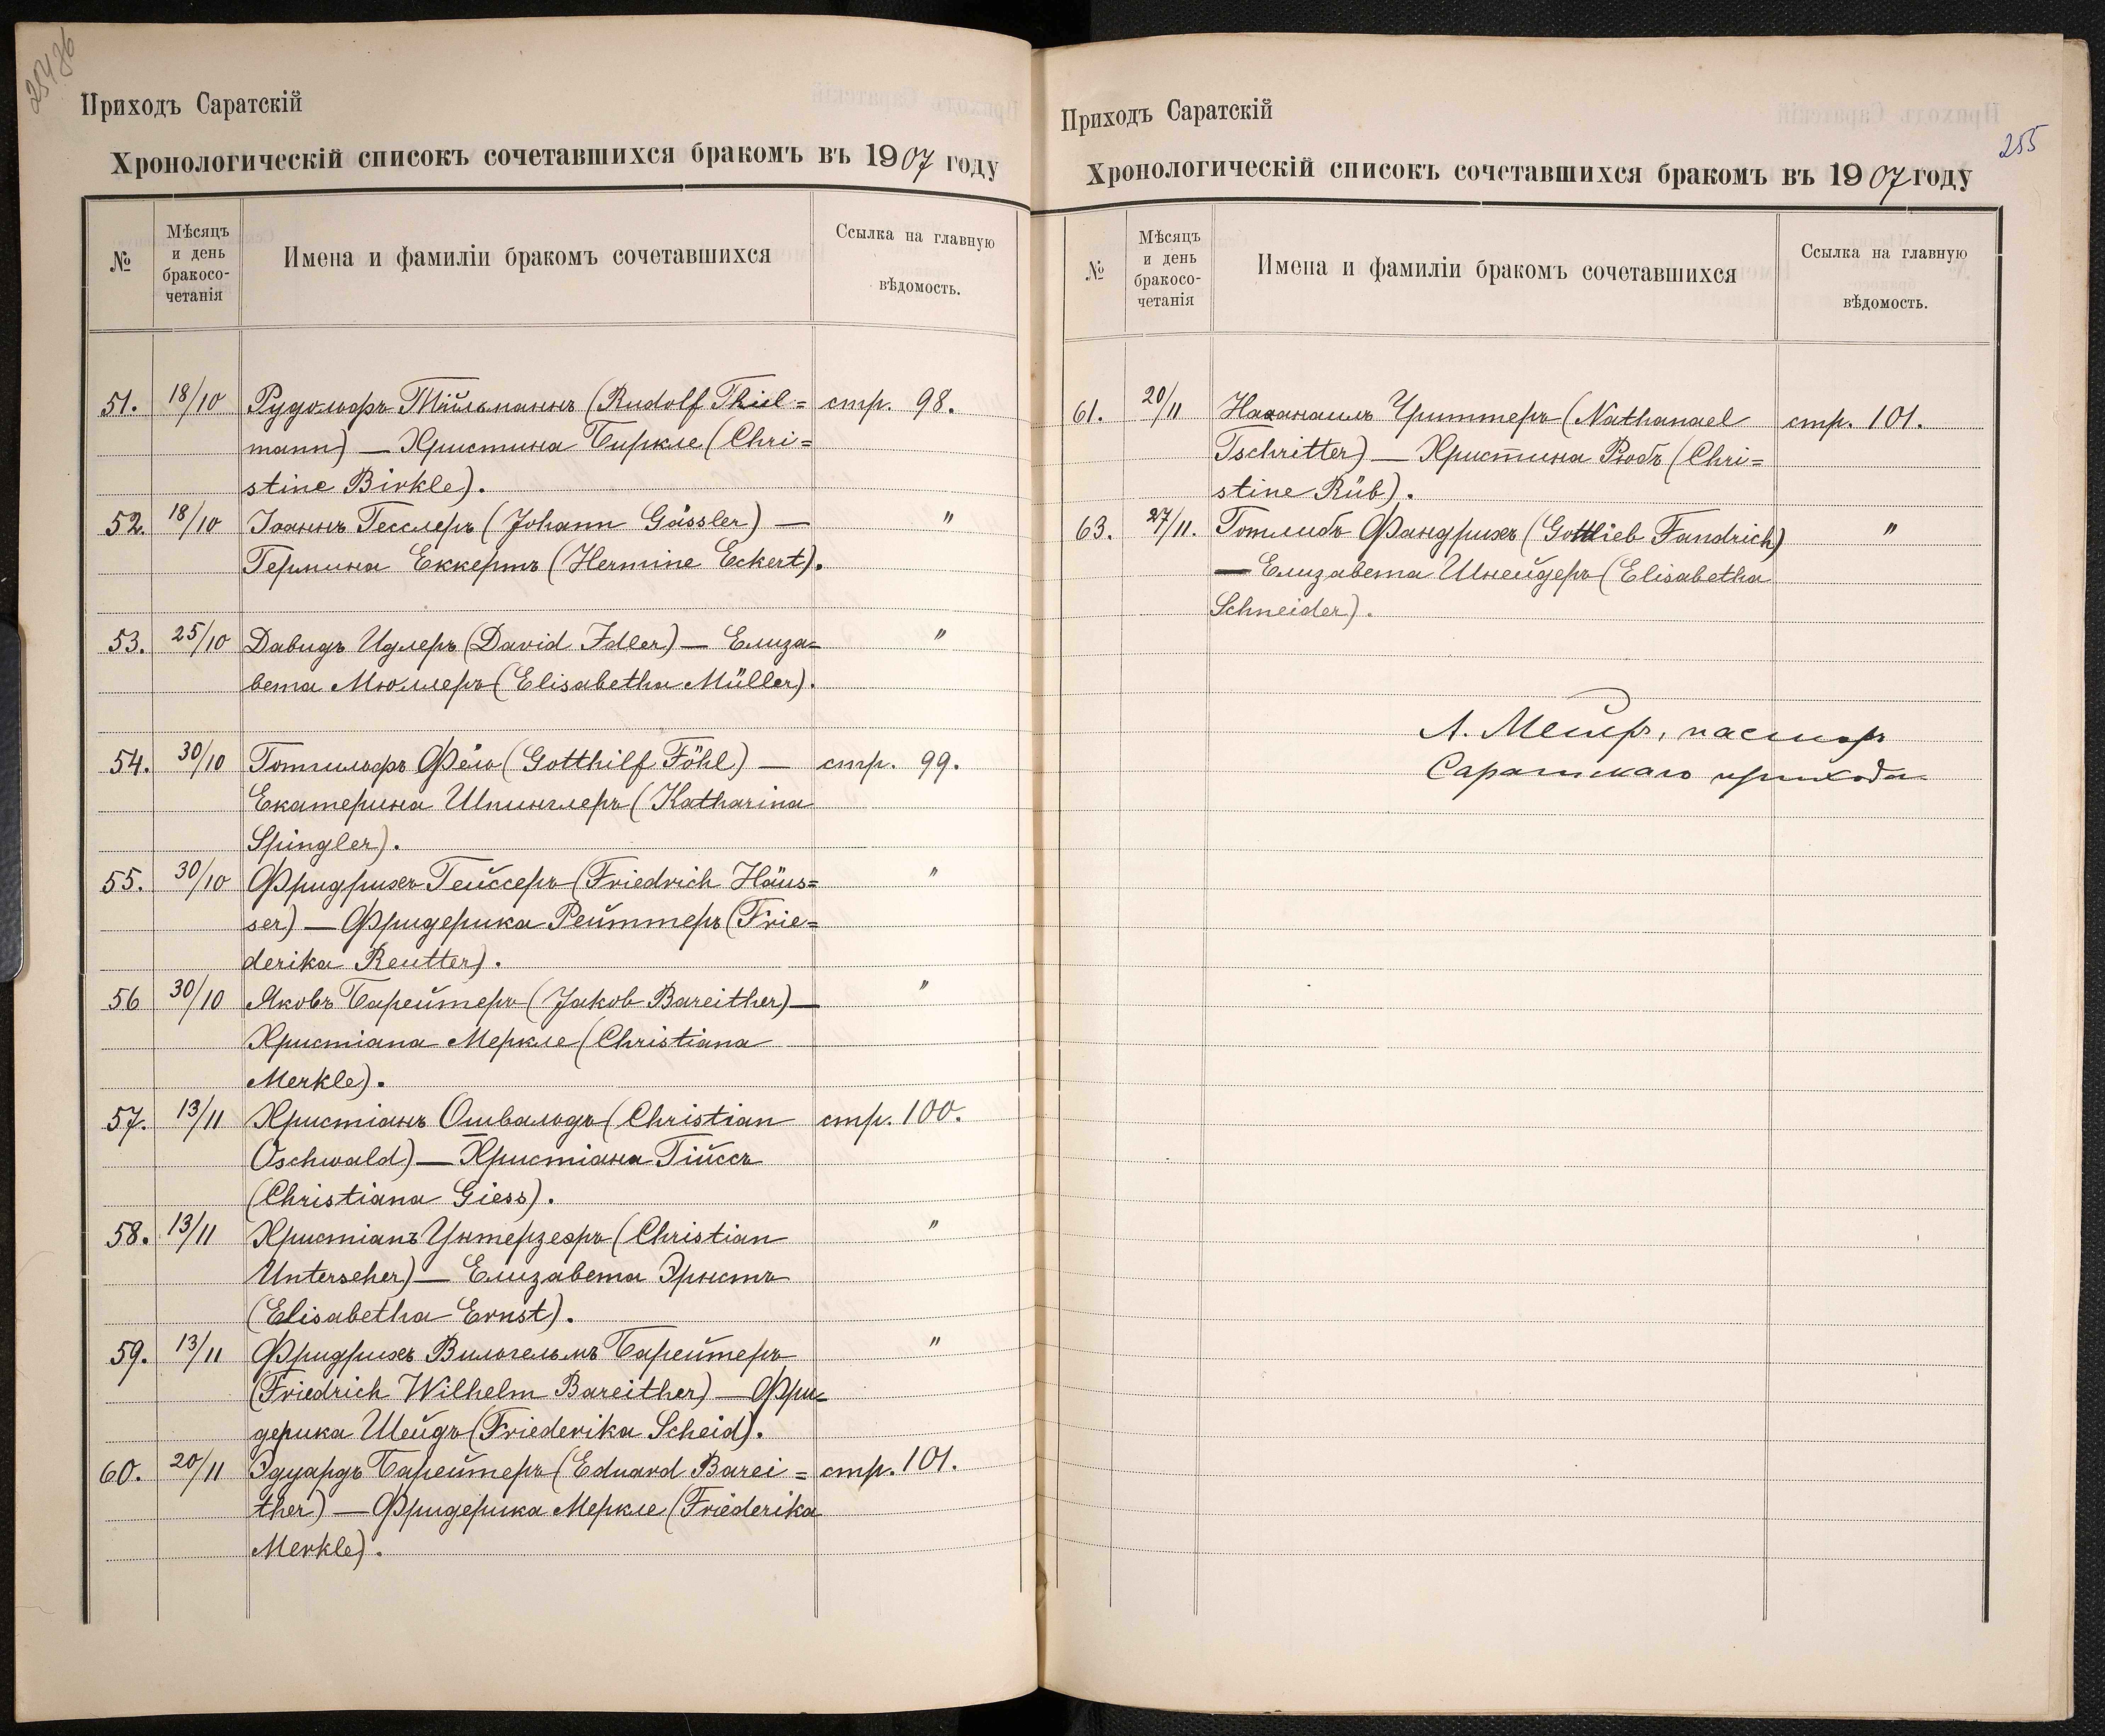 Приходъ Саратскій
Хронологическій списокъ сочетавшихся бракомъ въ 1907 году
№
Мѣсяцъ
и день
бракосо-
четанія
Имена и фамиліи бракомъ сочетавшихся
Ссылка на главную
вѣдомость.
51. 18/10 Рудольфъ Тійльманнъ (Rudolf Thiel= стр. 98.
mann) — Христина Биркле (Chri=
stine Birkle).
52. 18/10 Іоаннъ Гесслеръ (Johann Gässler) — "
Гермина Еккертъ (Hermine Eckert).
53. 25/10 Давидъ Идлеръ (David Idler) — Елиза= "
вета Мюллеръ (Elisabetha Müller).
54. 30/10 Готгильфъ Фёль (Gotthilf Föhl) — стр. 99.
Екатерина Шпинглеръ (Katharina
Spingler).
55. 30/10 Фридрихъ Гейссеръ (Friedrich Häus= "
ser) — Фридерика Рейттеръ (Frie=
derika Reutter).
56 30/10 Яковъ Барейтеръ (Jakob Bareither) — "
Христіана Меркле (Christiana
Merkle).
57. 13/11 Христіанъ Ошвальдъ (Christian стр. 100.
Oschwald) — Христіана Гійссъ
(Christiana Giess).
58. 13/11 Христіанъ Унтерзееръ (Christian "
Unterseher) — Елизавета Эрнстъ
(Elisabetha Ernst).
59. 13/11 Фридрихъ Вильгельмъ Барейтеръ "
(Friedrich Wilhelm Bareither) — Фри=
дерика Шейдъ (Friederika Scheid).
60. 20/11 Эдуардъ Барейтеръ (Eduard Barei= стр. 101.
ther) — Фридерика Меркле (Friederika
Merkle).
255
Приходъ Саратскій
Хронологическій списокъ сочетавшихся бракомъ въ 1907 году
№
Мѣсяцъ
и день
бракосо-
четанія
Имена и фамиліи бракомъ сочетавшихся
Ссылка на главную
вѣдомость.
61. 20/11 Наѳанаилъ Чриттеръ (Nathanael стр. 101.
Tschritter) — Христина Рюбъ (Chri=
stine Rüb).
63. 27/11. Готлибъ Фандрихъ (Gottlieb Fandrich) "
— Елизавета Шнейдеръ (Elisabetha
Schneider).
А. Мейеръ, пасторъ
Саратскаго прихода